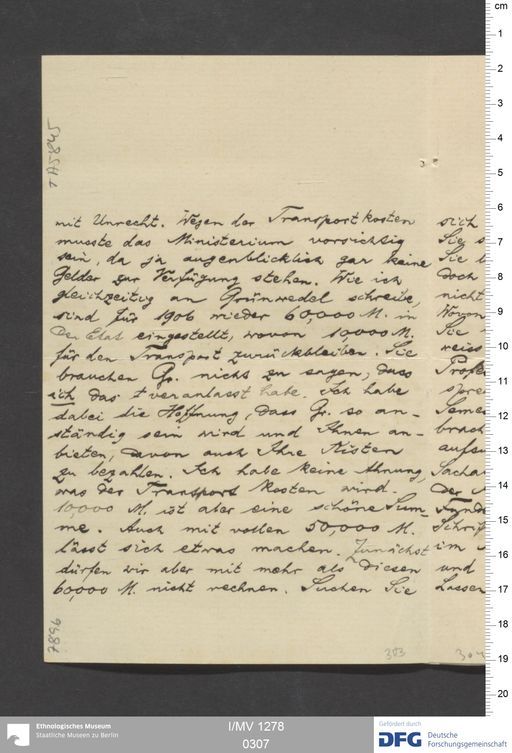 mit Unrecht. Wegen der Transportkosten
musste das Ministerium vorsichtig
sein, da ja augenblicklich gar keine
Gelder zur Verfügung stehen. Wie ich
gleichzeitig an Grünwedel schreibe,
sind für 1906 wieder 60,000 M. in
den Etat eingestellt, wovon 10,000 M.
für den Transport zurückbleiben. Sie
brauchen Gr. nicht zu sagen, dass
ich das veranlasst habe. Ich habe
dabei die Hoffnung, dass Gr. so an-
ständig sein wird und Ihnen an-
bieten, davon auch Ihre Kisten
zu bezahlen. Ich habe keine Ahnung,
was der Transport kosten wird.
10,000 M. ist aber eine schöne Sum-
me. Auch mit vollen 50,000 M.
lässt sich etwas machen. Zunächst
dürfen wir aber mit mehr als diesen
60,000 M. nicht rechnen. Suchen Sie
sich
Sie
Sie
doch
nicht
Sie
weiss
brach
im
und
lassen
7896
303
304
cm
1
2
3
4
5
6
7
8
9
10
11
12
13
14
15
16
17
18
19
20
Ethnologisches Museum
Staatliche Museen zu Berlin
I/MV 1278
0307
Gefördert durch
DFG Deutsche
Forschungsgemeinschaft